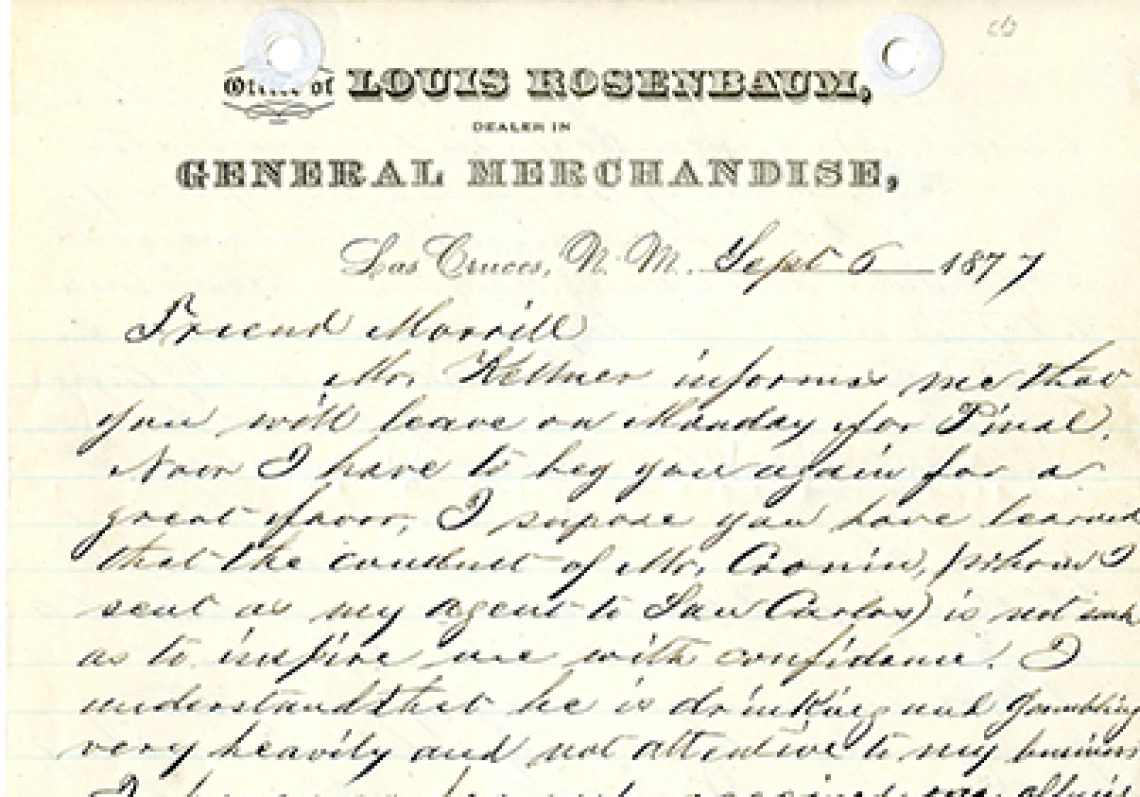 Office of LOUIS ROSENBAUM,
DEALER IN
GENERAL MERCHANDISE,
Las Cruces, N. M. Sept 6 1877
Friend Morrill
Mr. Kellner informs me that
you will leave on Monday for Pinal.
Now I have to beg you again for a
great favor, I supose you have learned
that the conduct of Mr. Cronin, (whom I
sent as my agent to San Carlos) is not such
as to inspire me with confidence. I
understand that he is drinking and gambling
very heavily and not attentive to my business
I